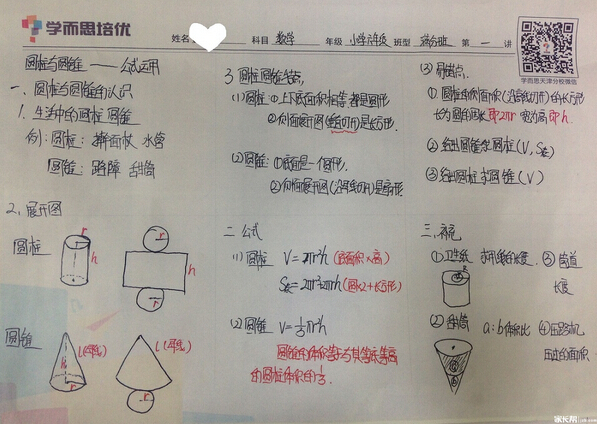 学而思培优
姓名 科目 数学 年级 小学六年级 班型 满分班 第 一 讲
学而思天津分校微信
圆柱与圆锥——公式运用
一、圆柱与圆锥的认识
1. 生活中的圆柱 圆锥
例：圆柱：擀面杖 水管
圆锥：路障 甜筒
2、展开图
圆柱
r
h
r
h
r
圆锥
h
r
l(母线)
l(母线)
r
3. 圆柱圆锥特点
(1) 圆柱 ①上下底面积相等 都是圆形
②侧面展开图(沿线切开)是长方形.
(2) 圆锥：①底面是一个圆形.
②侧面展开图(沿母线切开)是扇形
二 公式
(1) 圆柱 V=πr²h (底面积×高)
S表=2πr²+2πrh (圆×2+长方形)
(2) 圆锥 V=⅓πr²h
圆锥的体积等于与其等底等高
的圆柱体积的⅓
(3) 易错点.
① 圆柱的侧面积(沿高线切开)的长方形
长为圆的周长即2πr 宽为高即h.
② 给出圆锥求圆柱(V, S表)
③ 给出圆柱求圆锥(V)
三、补充
① 卫生纸 求用纸的长度.
③ 管道
长度
② 甜筒 a:b体积比
④ 压路机
压过的面积
a
b
家长帮 jzb.com